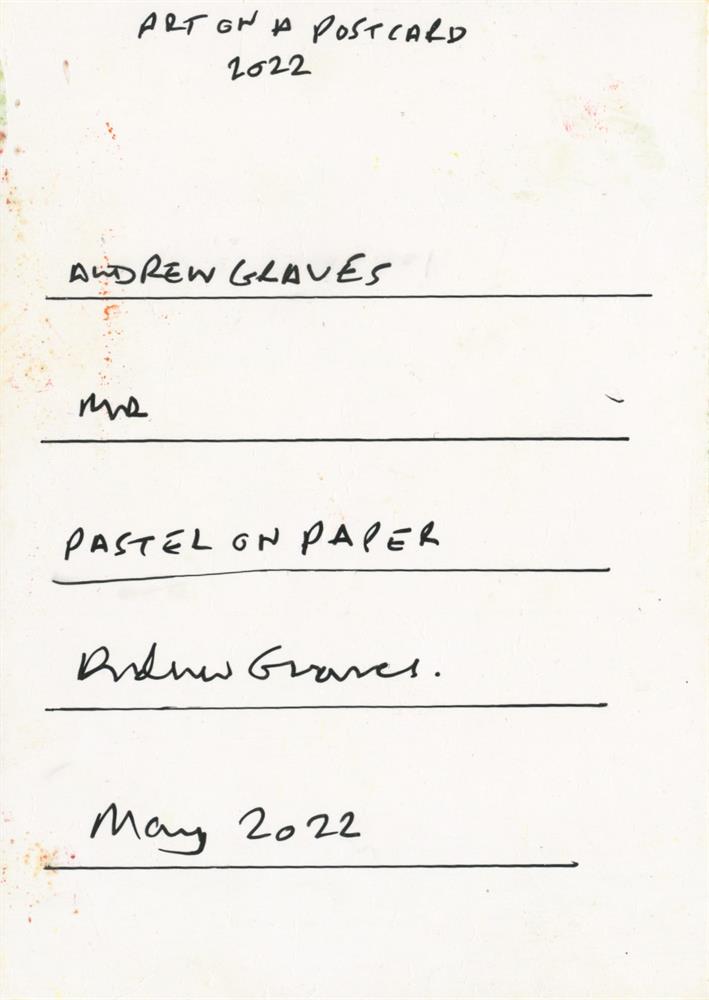 ART ON A POSTCARD
2022
ANDREW GRAVES
MR
PASTEL ON PAPER
Andrew Graves.
May 2022